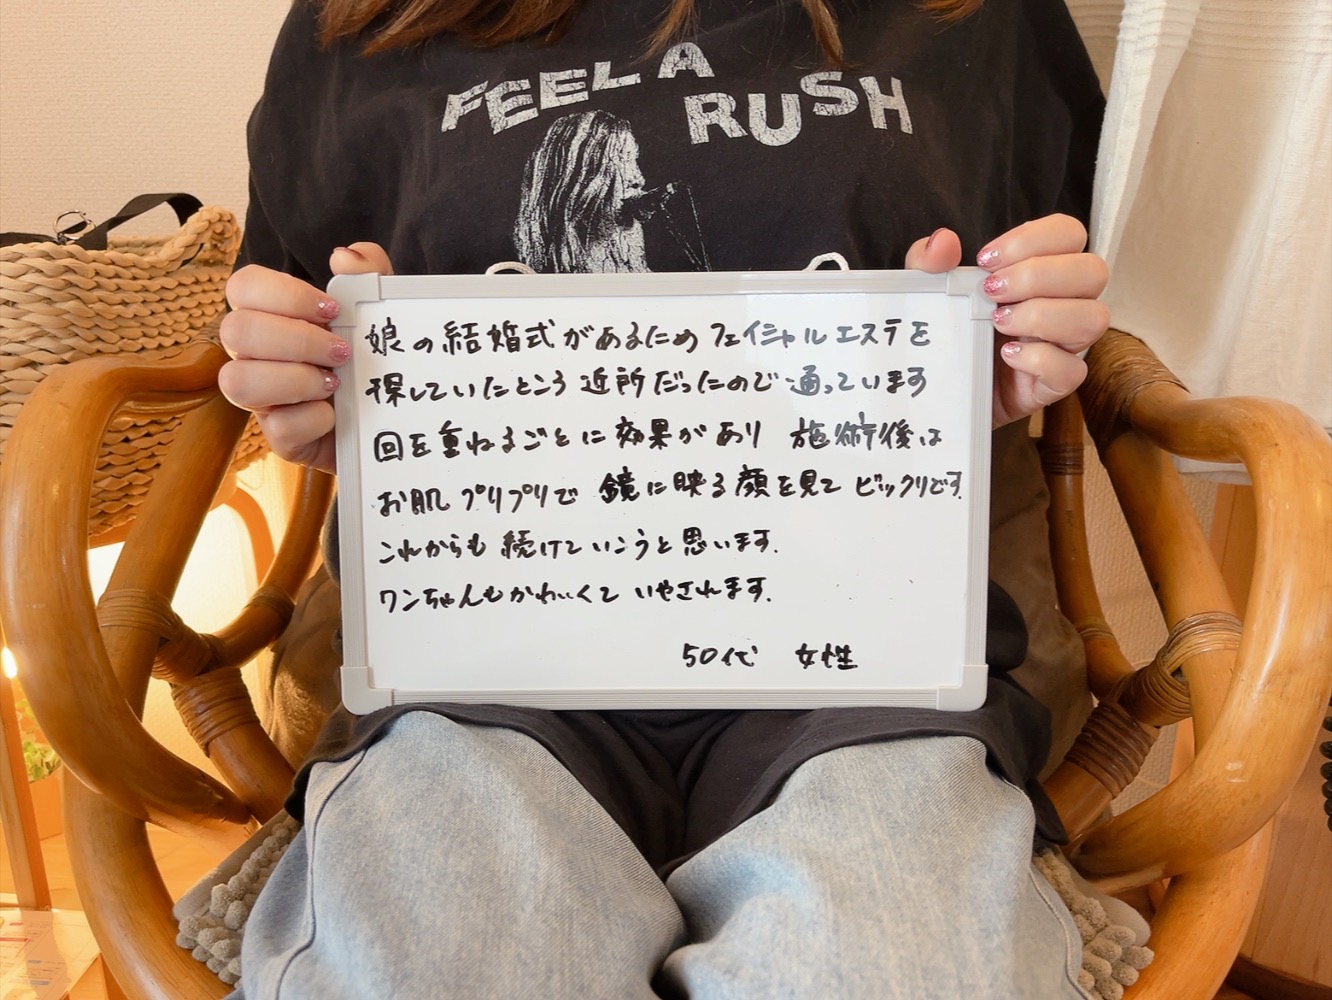 FEEL A RUSH
娘の結婚式があるためフェイシャルエステを
探していたところ 近所だったので 通っています
回を重ねるごとに効果があり 施術後は
お肌プリプリで 鏡に映る顔を見て ビックリです.
これからも続けていこうと思います.
ワンちゃんもかわいくて いやされます.
50代 女性